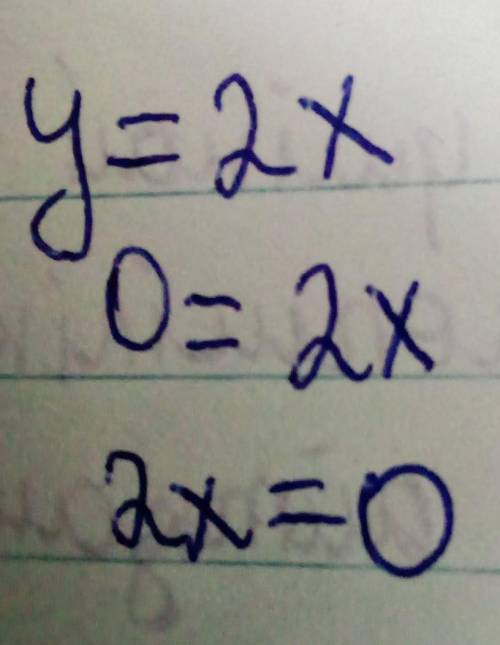 y = 2x
0 = 2x
2x = 0